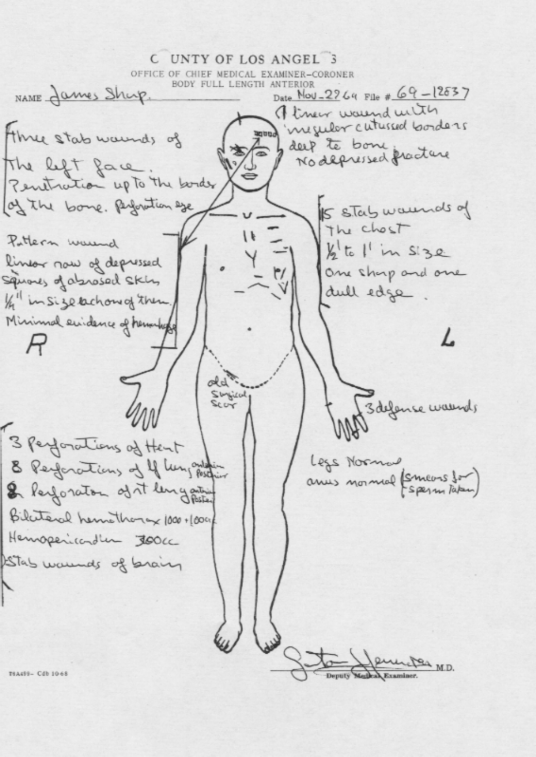 C UNTY OF LOS ANGEL 3
OFFICE OF CHIEF MEDICAL EXAMINER-CORONER
BODY FULL LENGTH ANTERIOR
NAME James Sharp. Date Nov-22 69 File # 69-12637
Three stab wounds of
The left face.
Penetration up to the border
of the bone. Perforation eye
Pattern wound
linear row of depressed
squares of abrased skin
in size each one of them.
Minimal evidence of hemorrhage
R
1 linear wound with
irregular borders
deep to bone.
No depressed fracture
15 stab wounds of
The chest
1/2' to 1' in size
One sharp and one
dull edge.
L
old
surgical
scar
3 defense wounds
3 Perforations of Heart
8 Perforations of lf lung anterior
Posterior
Perforation of rt lung
Bilateral hemothorax 1000 + 100cc
Hemopericardium 300cc
Stab wounds of brain
Legs Normal
anus normal (smears for
sperm taken)
M.D.
Deputy Medical Examiner.